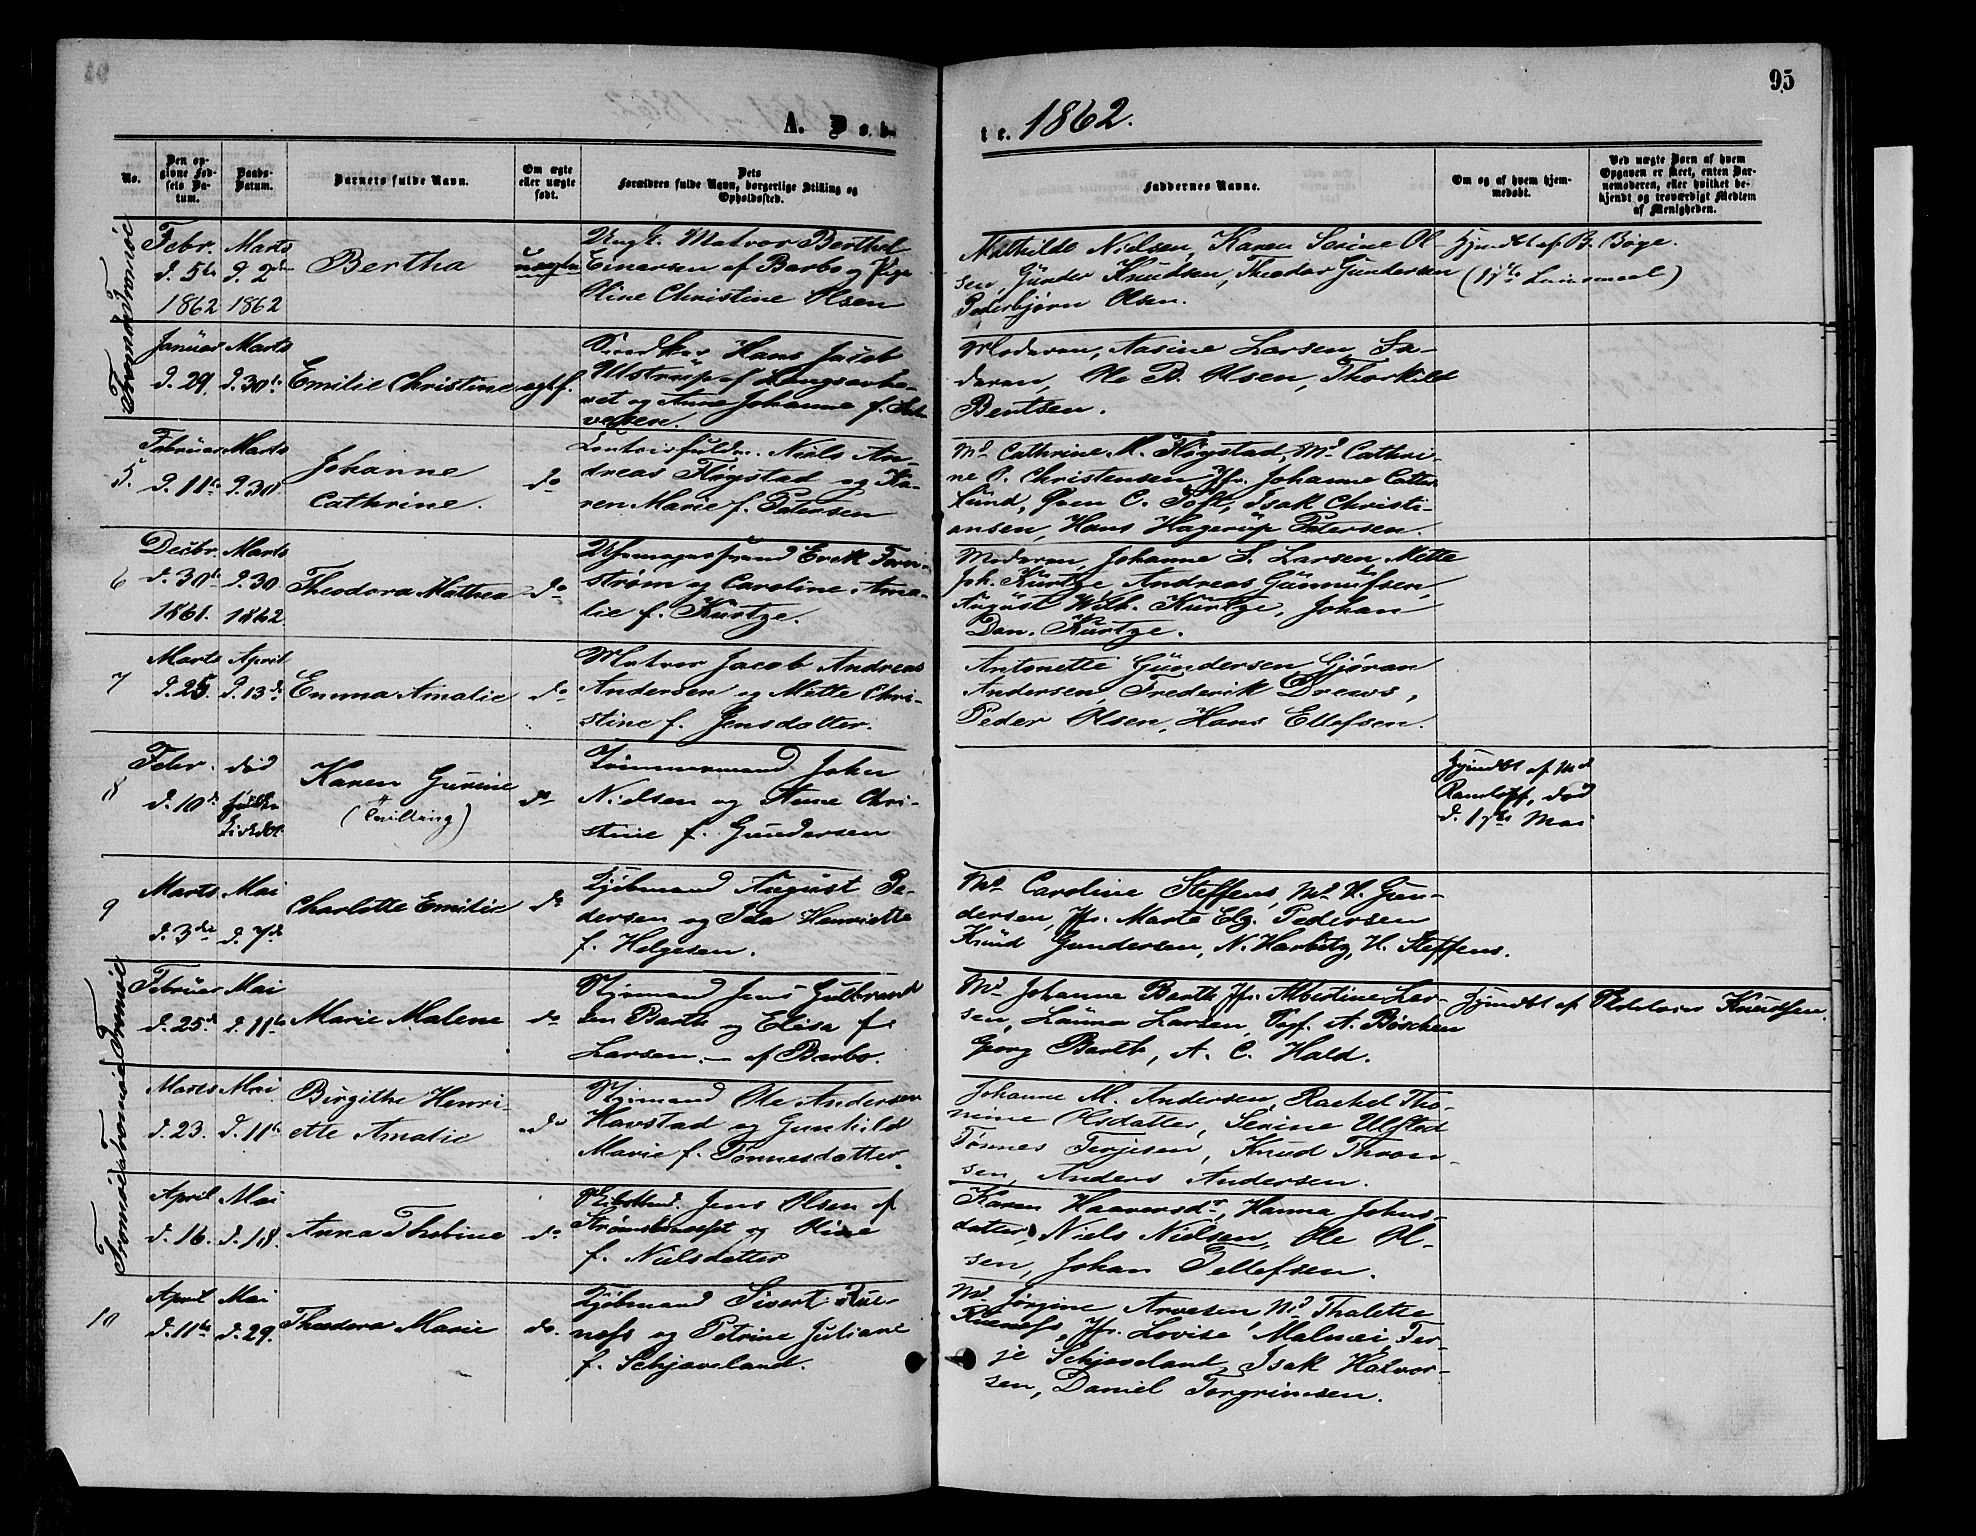 95
A. Døb-
te. 1862.
No.
Den op-
givne Fød-
sels Da-
tum.
Daabs-
Datum.
Barnets fulde Navn.
Om ægte
eller uægte
født.
Dets
Forældres fulde Navn, borgerlige Stilling og
Opholdssted.
Faddernes Navne.
Om og af hvem hjem-
medøbt.
Ved uægte Børn af hvem
Opgaven er skeet, enten Bar-
nemoderen, eller hvilket be-
kjendt og troværdigt Medlem
af Menigheden.
Tromø Tromø
Febr.
d. 5te
1862
Marts
d. 2den
1862
Bertha
uægte
Ungk. Matros Berthel
Einersen af Barbo og Pige
Oline Christine Olsen
Mathilde Nielsen, Karen Serine Ol-
sen, Günder Knudsen, Theodor Gundersen
Pederbjørn Olsen.
Hjemdbt af B. Bøge.
Januar
d. 29.
Marts
d. 30te
Emilie Christine
egtf.
Hans Jacob
Ulstrup af Langsævha-
vet og Anne Johanne f.
Moderen, Aasine Larsen, Fa-
deren, Ole B. Olsen, Thorkild
Bentsen.
5.
Februar
d. 11te
Marts
d. 30
Johanne
Cathrine.
do
Niels An-
dreas Fløystad og Ka-
ren Marie f. Petersen
Md Cathrine M. Fløystad, Md Cathri-
ne O. Christensen Jfr. Johanne Cathr.
Lund, Sven C. Toft, Isak Christi-
ansen, Hans Hagerup Petersen.
6
Decbr.
d. 30te
1861.
Marts
d. 30
1862.
Theodora Mathea
do
Uhrmagersvend Erik Torn-
strøm og Caroline Ama-
lie f. Kürtze.
Moderen, Johanne S. Larsen, Mette
Joh. Kürtze, Andreas Günnufsen,
August Wilh. Kürtze, Johan
Dan. Kürtze.
7
Marts
d. 25.
April
d. 13de
Emma Amalie
do
Matros Jacob Andreas
Andersen og Mette Chri-
stine f. Jensdatter.
Antonette Gündersen Gjøran
Andersen, Frederik Drews,
Peder Olsen, Hans Ellefsen.
8
Febr.
d. 10de
død
før
Karen Gurine
(Tvilling)
do
Tømmermand John
Nielsen og Anne Chri-
stine f. Gundersen
Hjemdbt af Md
død
d. 17de Mai
9
Marts
d. 3die
Mai
d. 7de
Charlotte Emilie
do
Kjøbmand August Pe-
dersen og Ida Henriette
f. Helgesen.
Md Caroline Steffens, Md H. Gun-
dersen, Jfr. Marte Elg. Pedersen
Knud Gundersen, N. Harbitz, H. Steffens.
Tromøe Tromøe Tromøe
Februar
d. 25de
Mai
d. 11te
Marie Malene
do
Styrmand Jens Gulbrand-
sen Barth og Elisa f.
Larsen. — af Barbo.
Md Johanne Barth Jfr. Albertine Lar-
sen, Launa Larsen, A. Bøschen
Georg Barth, A. C. Hald.
Hjemdbt af Knudsen.
Marts
d. 23.
Mai
d. 11te
Birgithe Henri-
ette Amalie
do
Styrmand Ole Andersen
Havstad og Gunhild
Marie f. Tønnesdatter.
Johanne M. Andersen, Rachel Tho-
mine Olsdatter, Serine Ulstad
Tønnes Terjesen, Knud Thron-
sen, Anders Andersen.
April
d. 16.
Mai
d. 18.
Anna Thobine
do
Jens Olsen af
Strømsbunæst og Oline
f. Nielsdatter
Karen Haaversdr, Hanna Johns-
datter, Niels Nielsen, Ole Ol-
sen, Johan Tellefsen.
10
April
d. 11te
Mai
d. 29.
Theodora Marie
do.
Kjøbmand Sivert Rue-
næss og Petrine Juliane
f. Schjaveland.
Md Jørgine Arvesen Md Thalette
Ruenæss, Jfr. Lovise Malmei, Ter-
je Schjaveland, Isak Halvor-
sen, Daniel Torgrimsen.